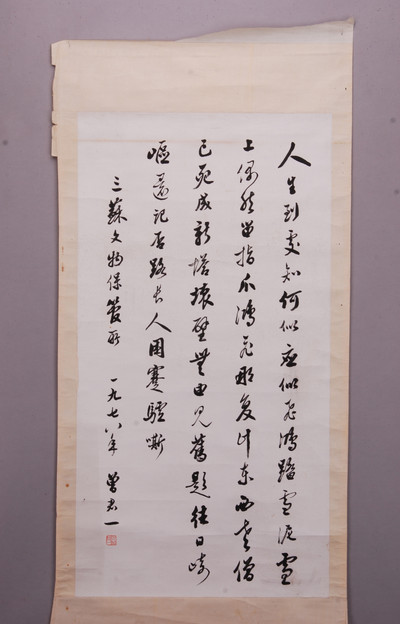 人生到处知何似应似飞鸿踏雪泥雪
上偶然留指爪鸿飞那复计东西老僧
已死成新塔坏壁无由见旧题往日崎
岖还记否路长人困蹇驴嘶
三苏文物保管所 一九七八年 曾君一